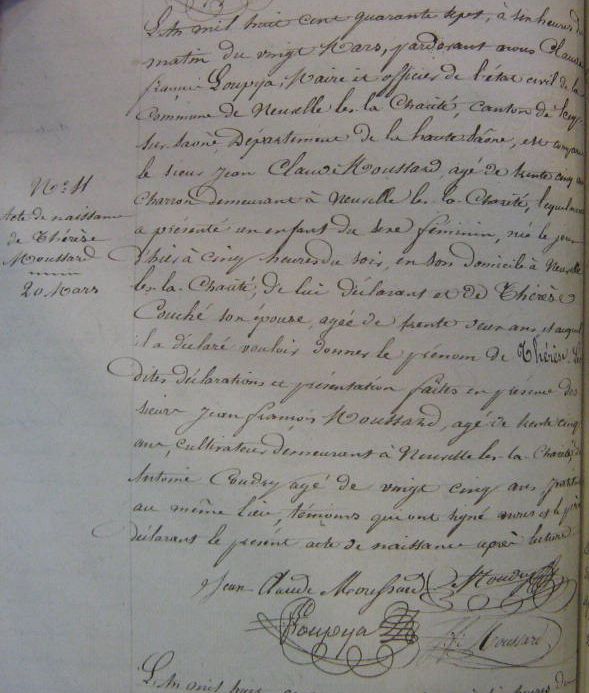 N.º 11
Acte de naissance
de Thérèse
Moussard
20 Mars
L'An mil huit cent quarante sept, à six heures du
matin du vingt Mars, pardevant nous Claude
françois Loupya, Maire et officier de l'état civil de la
Commune de Neuvelle les la Charité, canton de Scey-
sur-Saône, Département de la haute Saône, est comparu
le sieur Jean Claude Moussard, agé de trente cinq ans
Charron demeurant à Neuvelle les-la-Charité, lequel nous
a présenté un enfant du sexe féminin, née le jour
d'hier à cinq heures du soir, en son domicile à Neuvelle
les-la-Charité, de lui déclarant et de Thérèse
Couché son épouse, agée de trente deux ans, et auquel
il a déclaré vouloir donner le prénom de Thérèse. Les
dites déclarations et présentation faites en présence des
sieurs Jean françois Moussard, agé de trente cinq
ans, cultivateur demeurant à Neuvelle les-la-Charité, &
Antoine agé de vingt cinq ans
au même lieu, témoins qui ont signé avec nous et le père
déclarant le présent acte de naissance après lecture.
Jean Claude Moussard
Loupya
J. f. Moussard
L'An mil huit